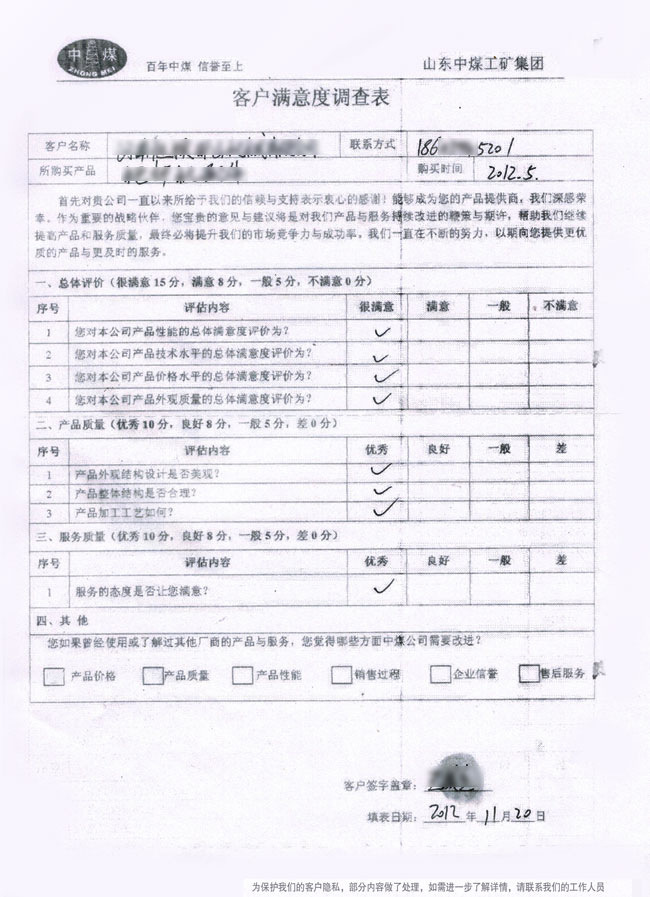 中煤
ZHONG MEI
百年中煤 信誉至上
山东中煤工矿集团
客户满意度调查表
客户名称 联系方式 186 5201
所购买产品 购买时间 2012.5.
首先对贵公司一直以来所给于我们的信赖与支持表示衷心的感谢！能够成为您的产品提供商，我们深感荣
幸。作为重要的战略伙伴，您宝贵的意见与建议将是对我们产品与服务持续改进的鞭策与期许，帮助我们继续
提高产品和服务质量，最终必将提升我们的市场竞争力与成功率。我们一直在不断的努力，以期向您提供更优
质的产品与更及时的服务。
一、总体评价（很满意 15 分，满意 8 分，一般 5 分，不满意 0 分）
序号 评估内容 很满意 满意 一般 不满意
1 您对本公司产品性能的总体满意度评价为？ ✓
2 您对本公司产品技术水平的总体满意度评价为？ ✓
3 您对本公司产品价格水平的总体满意度评价为？ ✓
4 您对本公司产品外观质量的总体满意度评价为？ ✓
二、产品质量（优秀 10 分，良好 8 分，一般 5 分，差 0 分）
序号 评估内容 优秀 良好 一般 差
1 产品外观结构设计是否美观？ ✓
2 产品整体结构是否合理？ ✓
3 产品加工工艺如何？ ✓
三、服务质量（优秀 10 分，良好 8 分，一般 5 分，差 0 分）
序号 评估内容 优秀 良好 一般 差
1 服务的态度是否让您满意？ ✓
四、其 他
您如果曾经使用或了解过其他厂商的产品与服务，您觉得哪些方面中煤公司需要改进？
产品价格 产品质量 产品性能 销售过程 企业信誉 售后服务
客户签字盖章：
填表日期： 2012 年 11 月 20 日
为保护我们的客户隐私，部分内容做了处理，如需进一步了解详情，请联系我们的工作人员